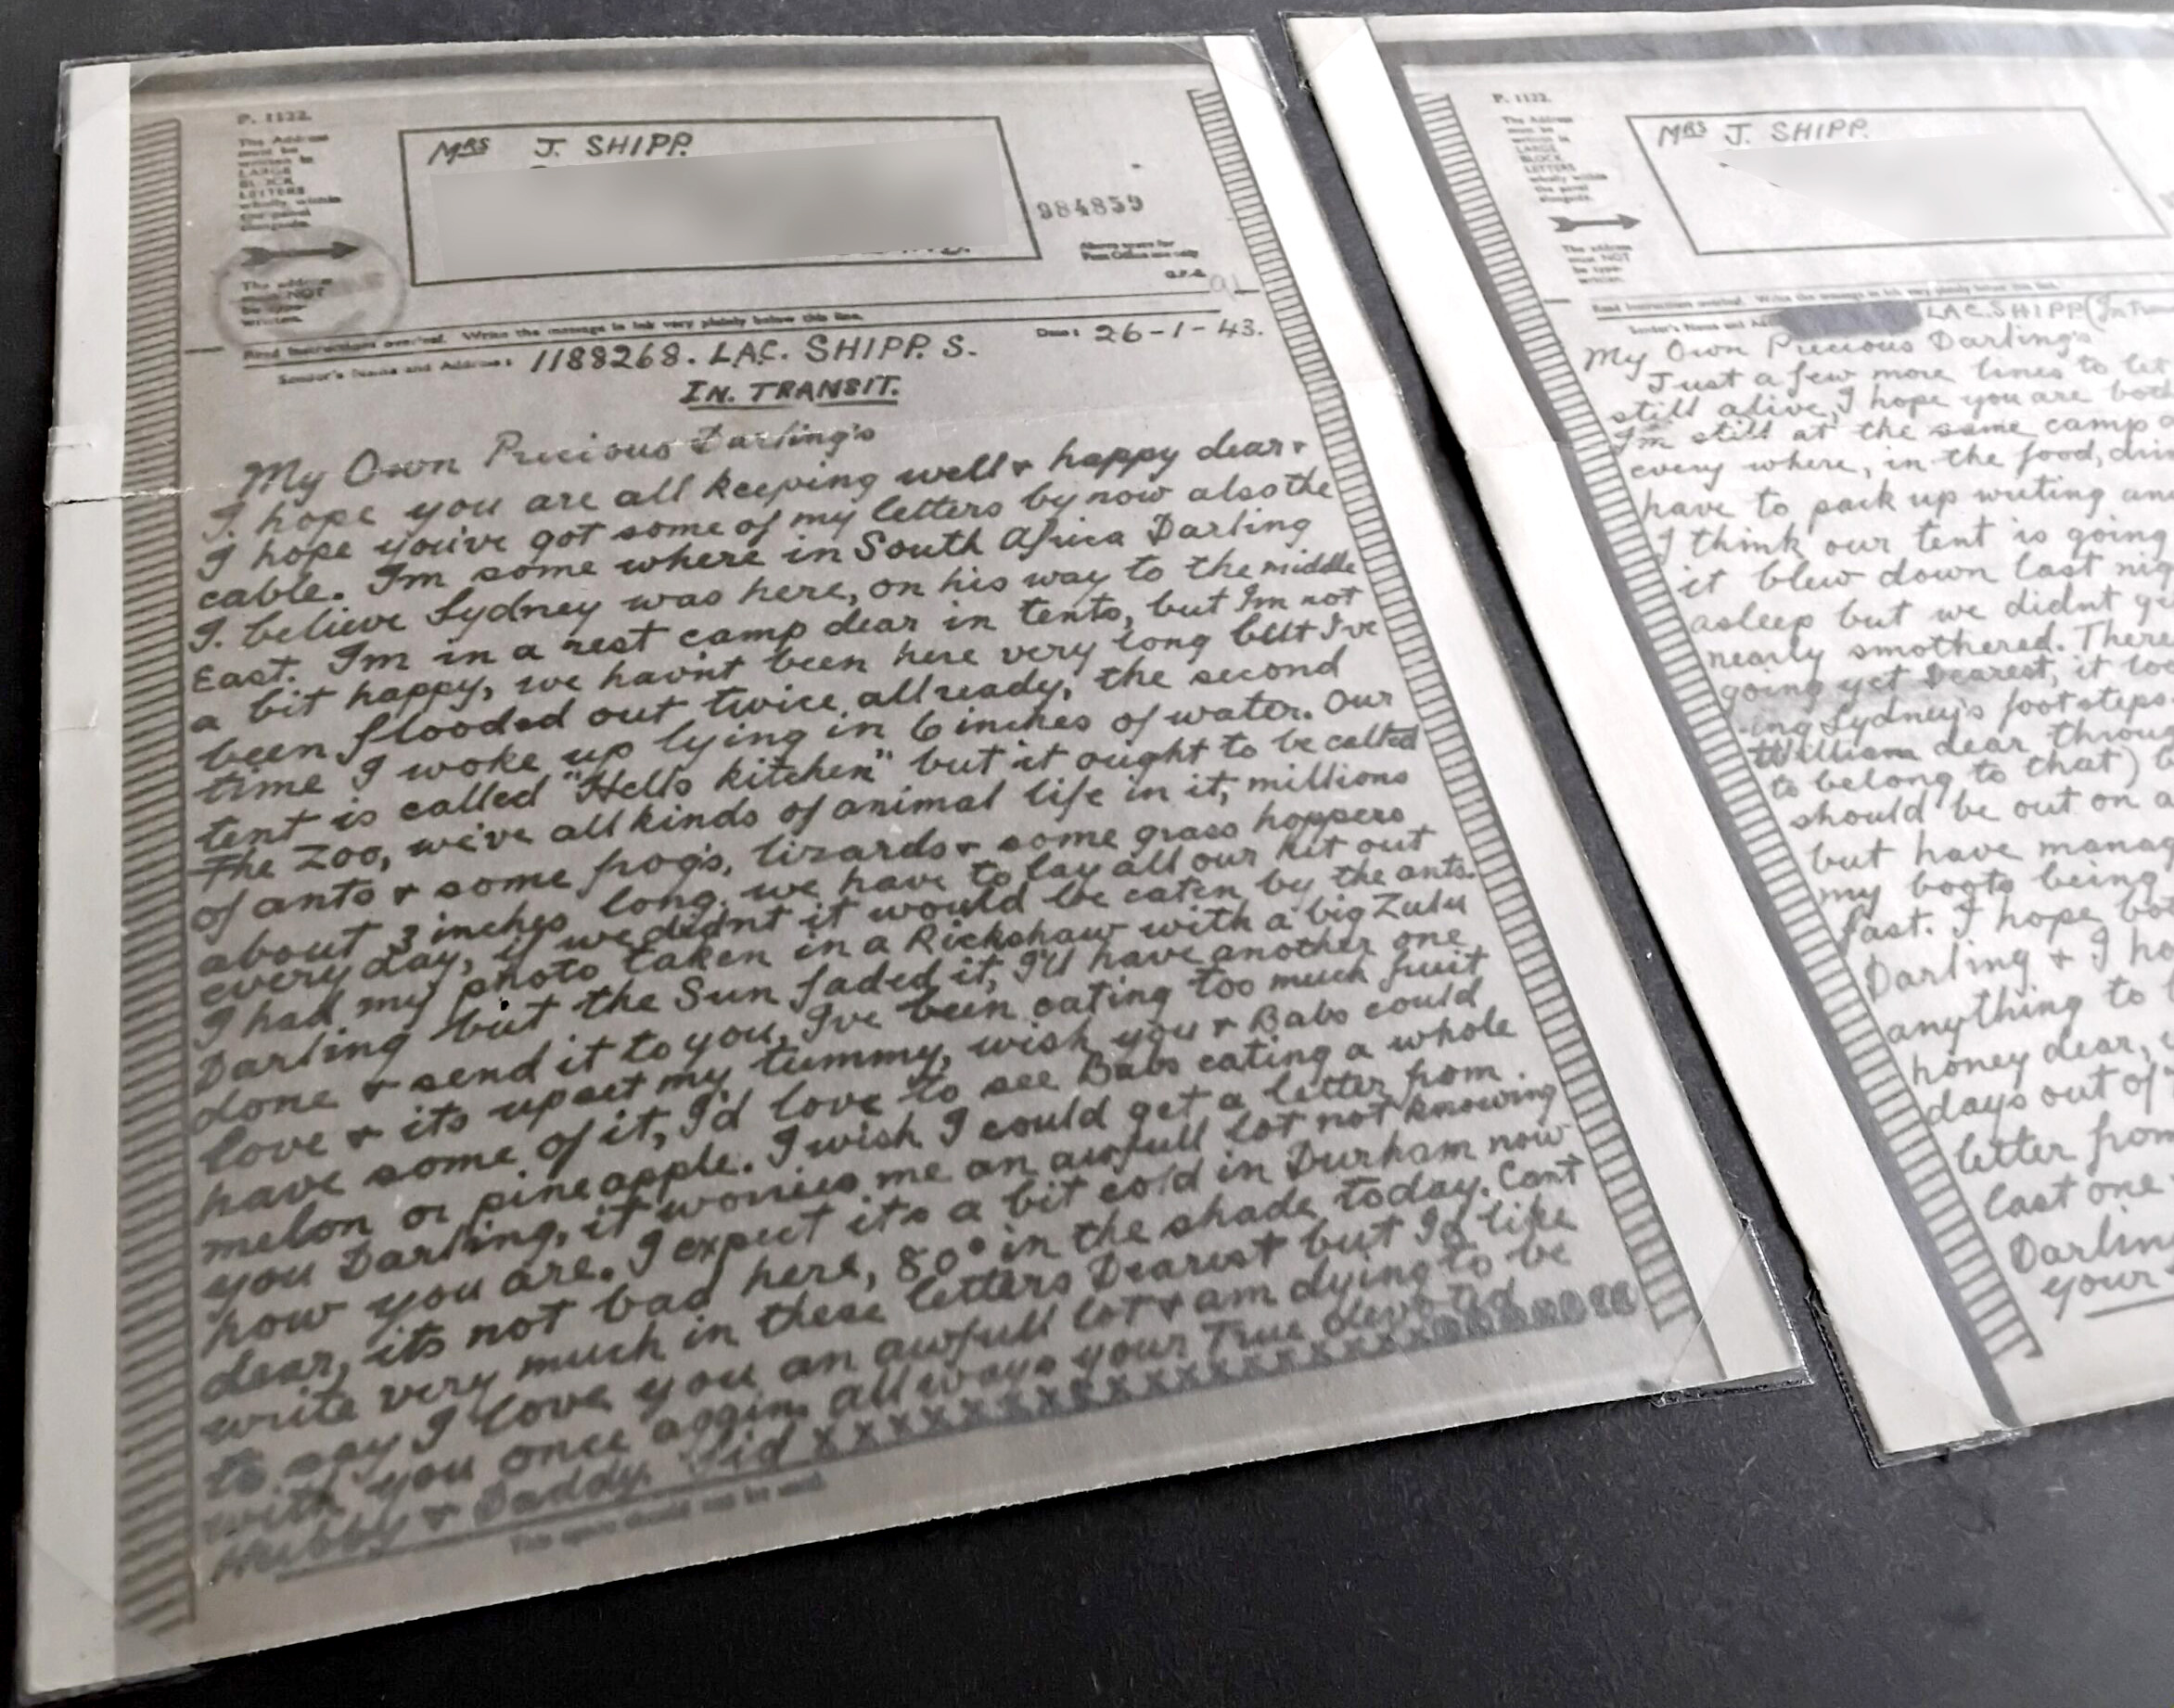 P. 1122.
The Address
must be
written in
LARGE
BLOCK
LETTERS
wholly within
the panel
alongside.
The address
must NOT
be type-
written.
MRS J. SHIPP.
984859
Above space for
Post Office use only
G.P.S.
Read Instructions overleaf. Write the message in ink very plainly below this line.
Sender's Name and Address: 1188268. LAC. SHIPP. S. Date: 26-1-43.
IN. TRANSIT.
My Own Precious Darling's
I hope you are all keeping well & happy dear &
I hope you've got some of my letters by now also the
cable. I'm some where in South Africa Darling
I believe Sydney was here, on his way to the middle
East. I'm in a rest camp dear in tents, but I'm not
a bit happy, we hav'nt been here very long but I've
been flooded out twice allready, the second
time I woke up lying in 6 inches of water. Our
tent is called "Hells kitchen" but it ought to be called
The Zoo, we've all kinds of animal life in it, millions
of ants & some frogs, lizards & some grass hoppers
about 3 inches long. we have to lay all our kit out
every day, if we didnt it would be eaten by the ants.
I had my photo taken in a Rickshaw with a big Zulu
Darling but the Sun faded it, I'll have another one
done & send it to you, I've been eating too much fruit
love & its upset my tummy, wish you & Babs could
have some of it, I'd love to see Babs eating a whole
melon or pineapple. I wish I could get a letter from
you Darling, it worries me an awfull lot not knowing
how you are. I expect its a bit cold in Durham now
dear, its not bad here, 80° in the shade today. Cant
write very much in these letters Dearest but I'd like
to say I love you an awfull lot & am dying to be
with you once again, all ways your True devoted
Hubby & Daddy. Sid x x x x x x x x x x x x x x x x x
This space should not be used.
P. 1122.
The Address
must be
written in
LARGE
BLOCK
LETTERS
wholly within
the panel
alongside.
The address
must NOT
be type-
written.
MRS J. SHIPP.
Read Instructions overleaf. Write the message in ink very plainly below this line.
Sender's Name and Ad LAC. SHIPP (In Tran
My Own Precious Darling's
Just a few more lines to let
still alive, I hope you are both
I'm still at the same camp
every where, in the food,
have to pack up writing an
I think our tent is going
it blew down last nig
asleep but we didnt ge
nearly smothered. There
going yet Dearest, it loo
-ing Sydney's footsteps
William dear throug
to belong to that)
should be out on a
but have manag
my boots being
fast. I hope bot
Darling & I ho
anything to
honey dear,
days out of
letter from
last one
Darlin
your